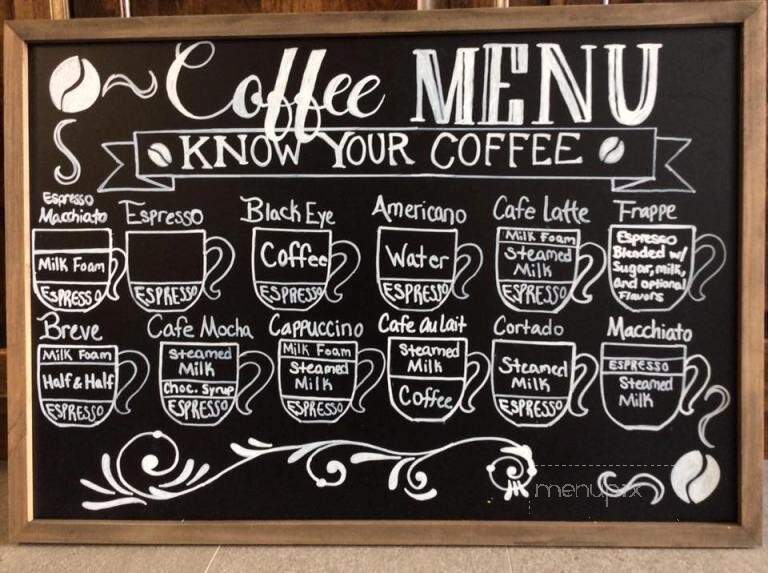 Coffee MENU
KNOW YOUR COFFEE
Espresso
Macchiato
Milk Foam
ESPRESSO
Espresso
ESPRESSO
Black Eye
Coffee
ESPRESSO
Americano
Water
ESPRESSO
Cafe Latte
Milk Foam
Steamed
Milk
ESPRESSO
Frappe
Espresso
Blended w/
Sugar, milk,
and optional
Flavors
Breve
Milk Foam
Half & Half
ESPRESSO
Cafe Mocha
Steamed
Milk
Choc. Syrup
ESPRESSO
Cappuccino
Milk Foam
Steamed
Milk
ESPRESSO
Cafe au lait
Steamed
Milk
Coffee
Cortado
Steamed
Milk
ESPRESSO
Macchiato
ESPRESSO
Steamed
Milk
menupix